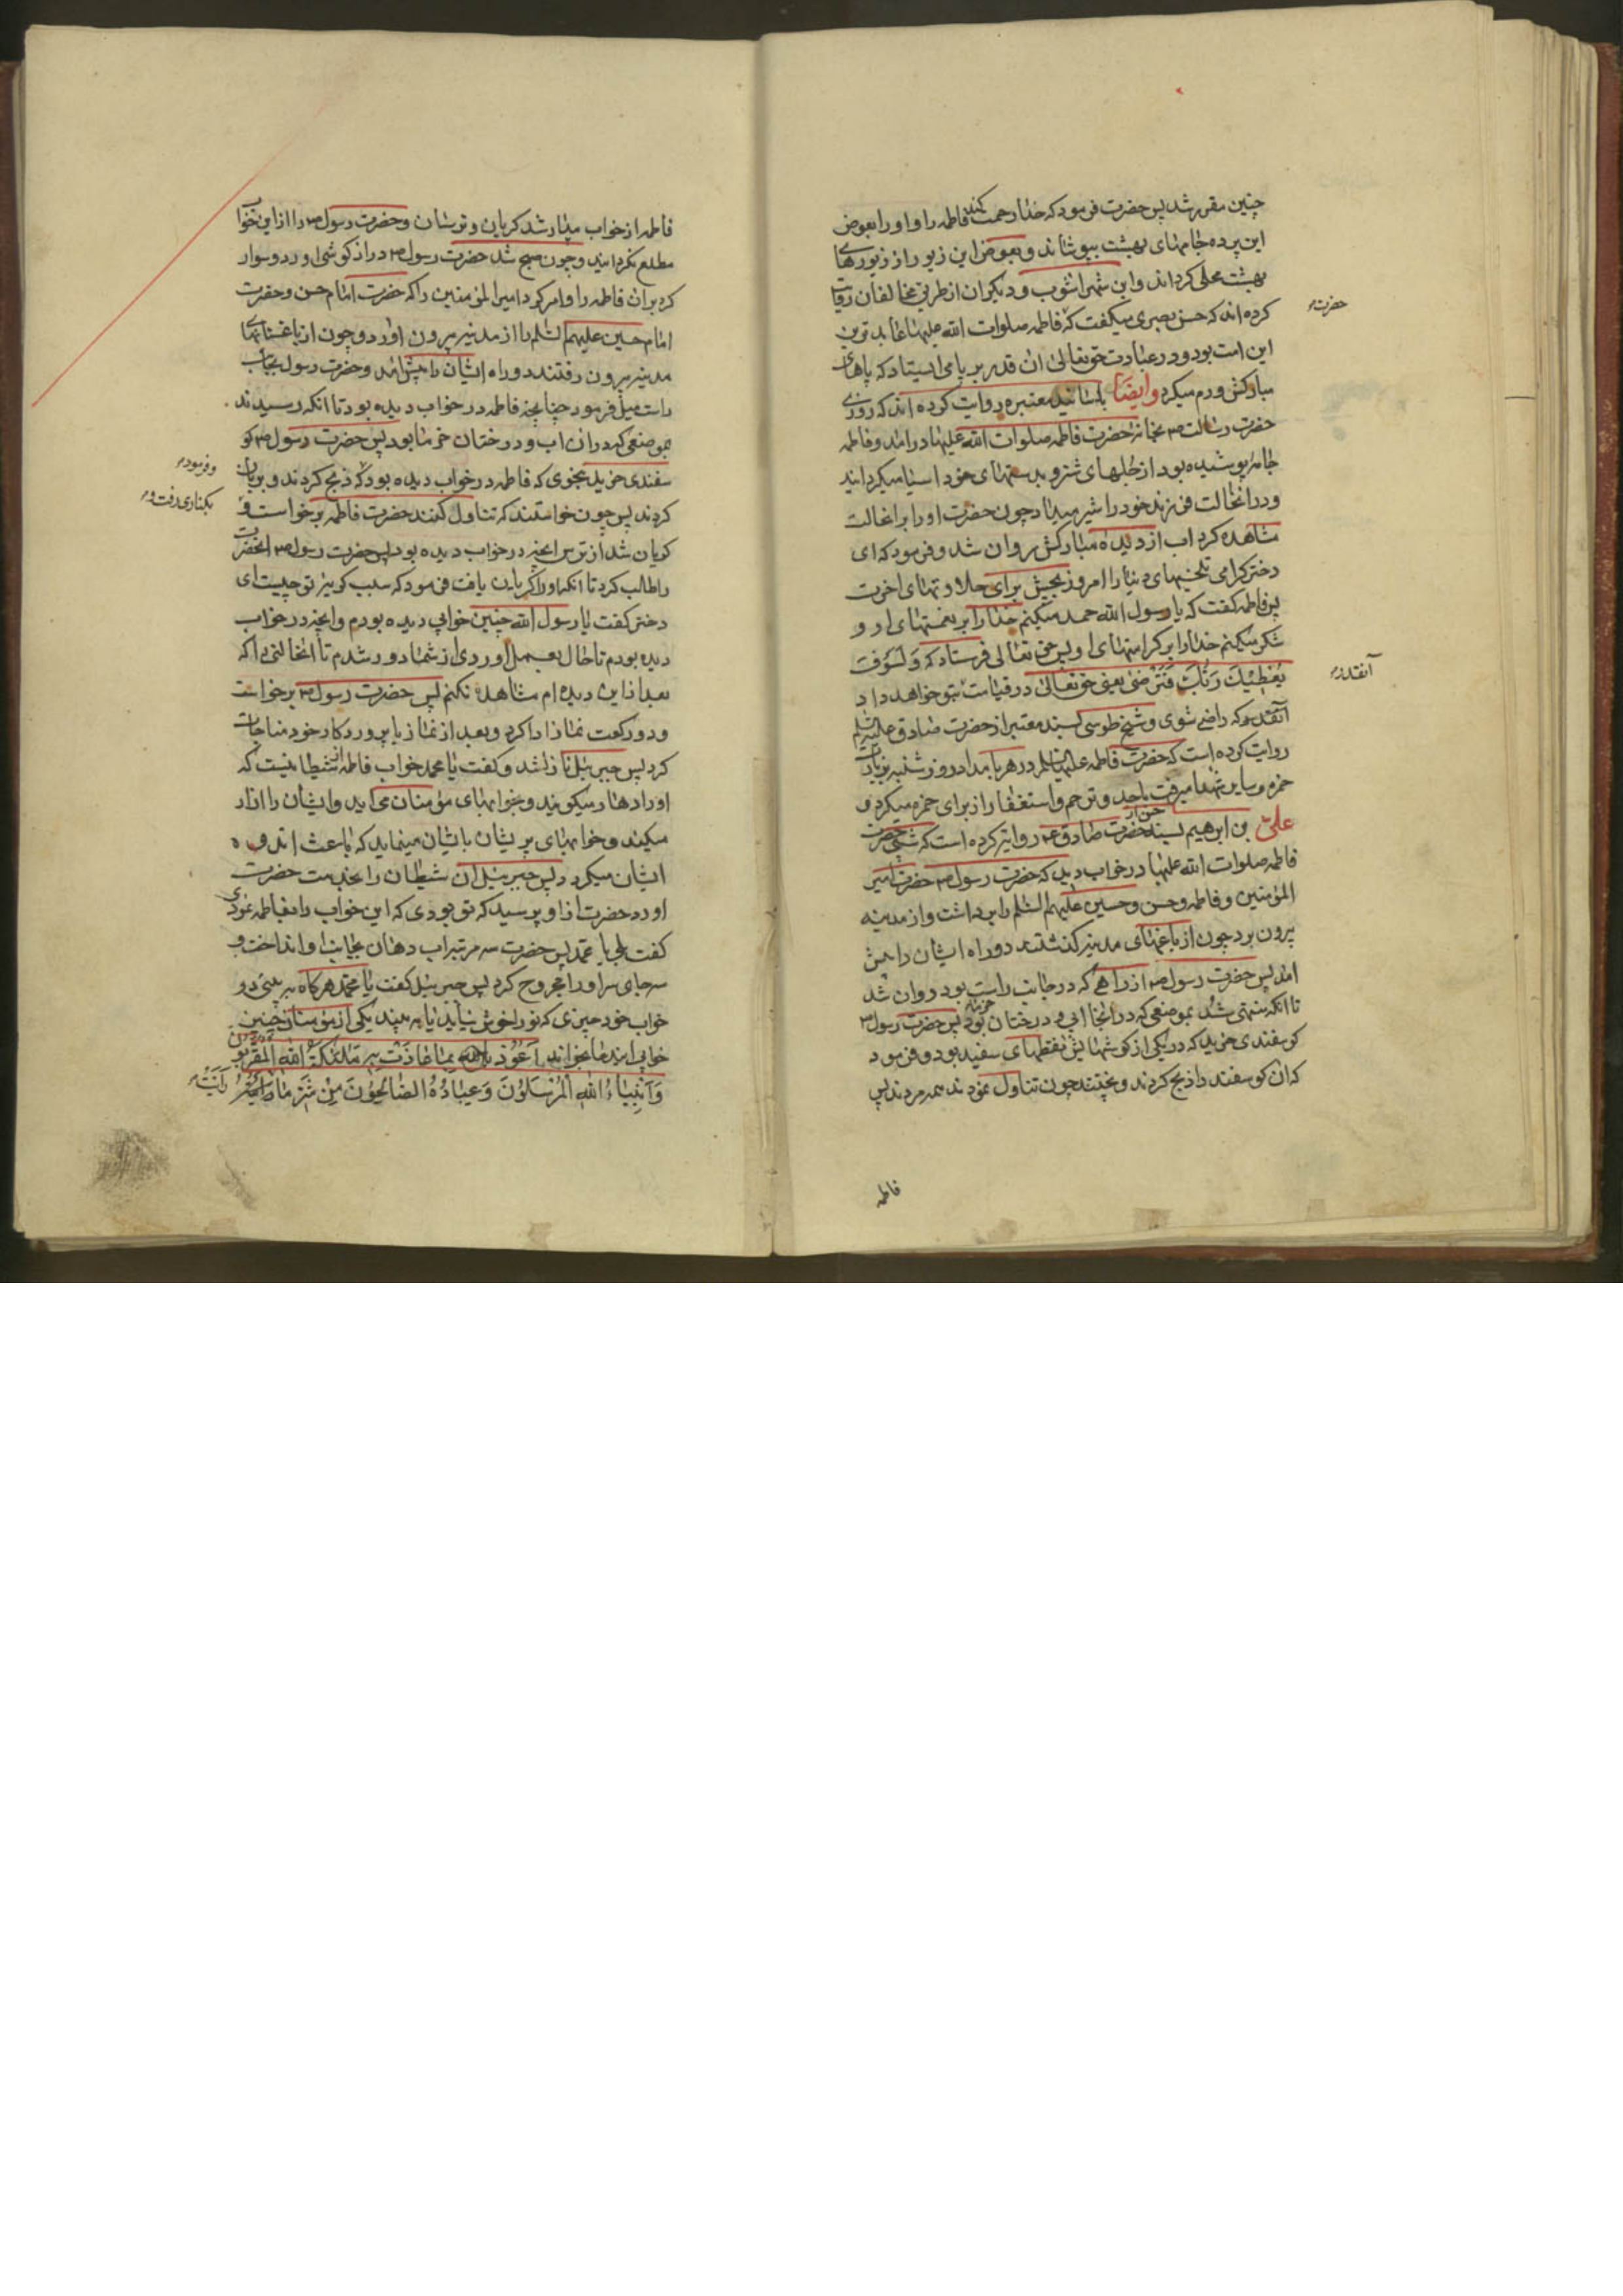 چنین مقرر شد پس حضرت فرمود که خدا رحمت کند فاطمه را و او را بعوض
این پرده جامهای بهشت بپوشاند و بعوض این زیور از زیورهای
بهشت محلی گرداند و ابن شهر اشوب و دیگران از طرق مخالفان روایت
کرده اند که حسن بصری میگفت که فاطمه صلوات الله علیها عابدترین
این امت بود و در عبادت حق تعالی ان قدر بر پا می ایستاد که پاهای
مبارکش ورم میکرد وایضا باسانید معتبره روایت کرده اند که روزی
حضرت رسالت ص بخانه حضرت فاطمه صلوات الله علیها درامد و فاطمه
جامه پوشیده بود از جلهای شتر و بدستهای خود اسیا میگردانید
و در انحالت فرزند خود را شیر میداد چون حضرت او را بر انحالت
مشاهده کرد اب از دیده مبارکش روان شد و فرمود که ای
دختر گرامی تلخیهای دنیا را امروز بچش برای حلاوتهای اخرت
پس فاطمه گفت که یا رسول الله حمد میکنم خدا را بر نعمتهای او و
شکر میکنم خدا را بر کرامتهای او پس حق تعالی فرستاد که وَلَسَوْفَ
یُعْطِیْكَ رَبُّكَ فَتَرْضیٰ یعنی حق تعالی در قیامت بتو خواهد داد
آنقدر که راضی شوی و شیخ طوسی بسند معتبر از حضرت صادق علیه السلم
روایت کرده است که حضرت فاطمه علیها السلم در هر بامداد روز شنبه بزیارت
حمزه و سایر شهدا میرفت باحد و ترحم و استغفار از برای حمزه میکرد و
علی بن ابرهیم بسند حسن از حضرت صادق ع روایت کرده است که شبی حضرت
فاطمه صلوات الله علیها در خواب دید که حضرت رسول ص حضرت امیر
المؤمنین و فاطمه و حسن و حسین علیهم السلم را برداشت و از مدینه
بیرون برد چون از باغهای مدینه گذشتند دو راه ایشان را پیش
امد پس حضرت رسول ص از راهی که در جانب راست بود روان شد
تا انکه منتهی شد بموضعی که در انجا ابی و درختان خرما بود پس حضرت رسول ص
گوسفندی خرید که در یکی از گوشهایش نقطهای سفید بود و فرمود
که ان گوسفند را ذبح کردند و پختند چون تناول نمودند همه مردند پس
حضرت
آنقدر
فاطمه
فاطمه از خواب بیدار شد گریان و ترسان و حضرت رسول ص را از این خواب
مطلع نگردانید و چون صبح شد حضرت رسول ص درازگوشی اورد و سوار
کرد بران فاطمه را و امر کرد امیر المؤمنین را که حضرت امام حسن و حضرت
امام حسین علیهم السلم را از مدینه بیرون اورد و چون از باغستانهای
مدینه بیرون رفتند دو راه ایشان را پیش امد و حضرت رسول بجانب
راست میل فرمود چنانچه فاطمه در خواب دیده بود تا انکه رسیدند
بموضعی که در ان اب و درختان خرما بود پس حضرت رسول ص گو
سفندی خرید بنحوی که فاطمه در خواب دیده بود که ذبح کردند و بریان
کردند پس چون خواستند که تناول کنند حضرت فاطمه برخواست و
گریان شد از ترس انچه در خواب دیده بود پس حضرت رسول ص انحضرت
را طالب کرد تا انکه او را گریان یافت فرمود که سبب گریه تو چیست ای
دختر گفت یا رسول الله چنین خوابی دیده بودم و انچه در خواب
دیده بودم تا حال بعمل اوردی از شما دور شدم تا انحالتی را که
بعد از این دیده ام مشاهده نکنم پس حضرت رسول ص برخواست
و دو رکعت نماز ادا کرد و بعد از نماز با پروردگار خود مناجات
کرد پس جبرئیل نازل شد و گفت یا محمد خواب فاطمه از شیطانیست که
او را دهار میگویند و بخوابهای مؤمنان می اید و ایشان را ازار
میکند و خوابهای پریشان باثیان مینماید که باعث اندوه
ایشان میگردد پس جبرئیل ان شیطان را بخدمت حضرت
اورد حضرت از او پرسید که تو بودی که این خواب را بفاطمه نمودی
گفت بلی یا محمد پس حضرت سه مرتبه اب دهان بجانب او انداخت و
سه جای سر او را مجروح کرد پس جبرئیل گفت یا محمد هرگاه به بینی در
خواب خود چیزی که تو را خوش نیاید یا به بیند یکی از مؤمنان چنین
خوابی این دعا بخواند اَعُوْذُ بِاللهِ بِمٰا عٰاذَتْ بِهِ مَلٰئِكَةُ اللهِ الْمُقَرَّبُوْنَ
وَ اَنْبِیٰاءُ اللهِ الْمُرْسَلُوْنَ وَعِبٰادُهُ الصّٰالِحُوْنَ مِنْ شَرِّ مٰا رَاَیْتُ
و فرمود
بکناری رفت و
رَاَیْتُ